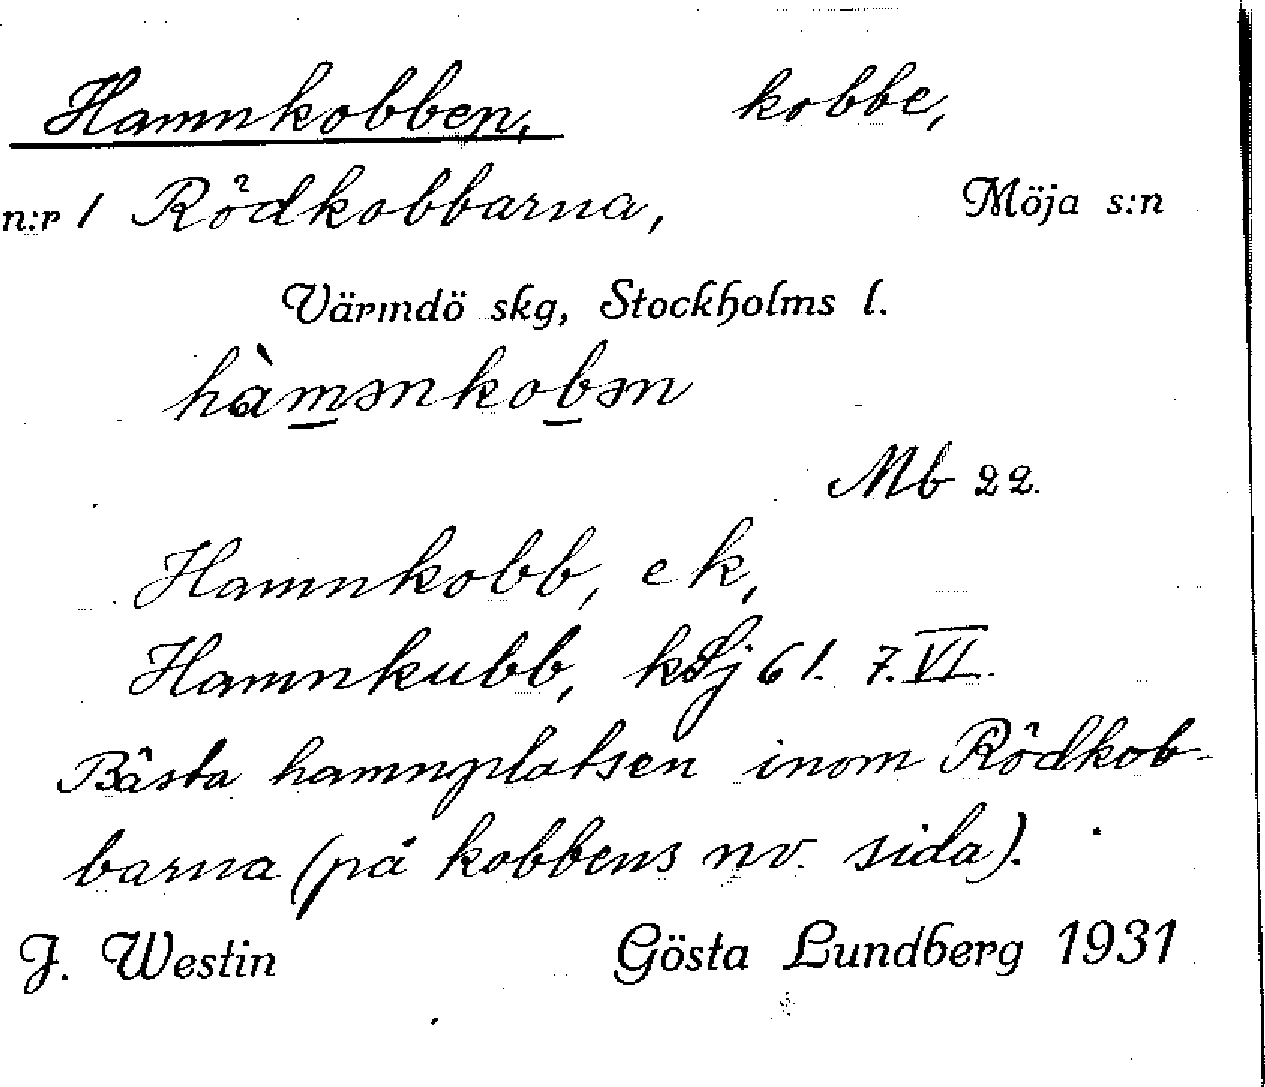 Hamnkobben, kobbe,
n:r 1 Rödkobbarna, Möja s:n
Värmdö skg, Stockholms l.
hàmənkobən
Mb 22.
Hamnkobb, ek,
Hamnkubb, ksj 61. 7. VI.
Bästa hamnplatsen inom Rödkob-
barna (på kobbens nv. sida).
J. Westin Gösta Lundberg 1931